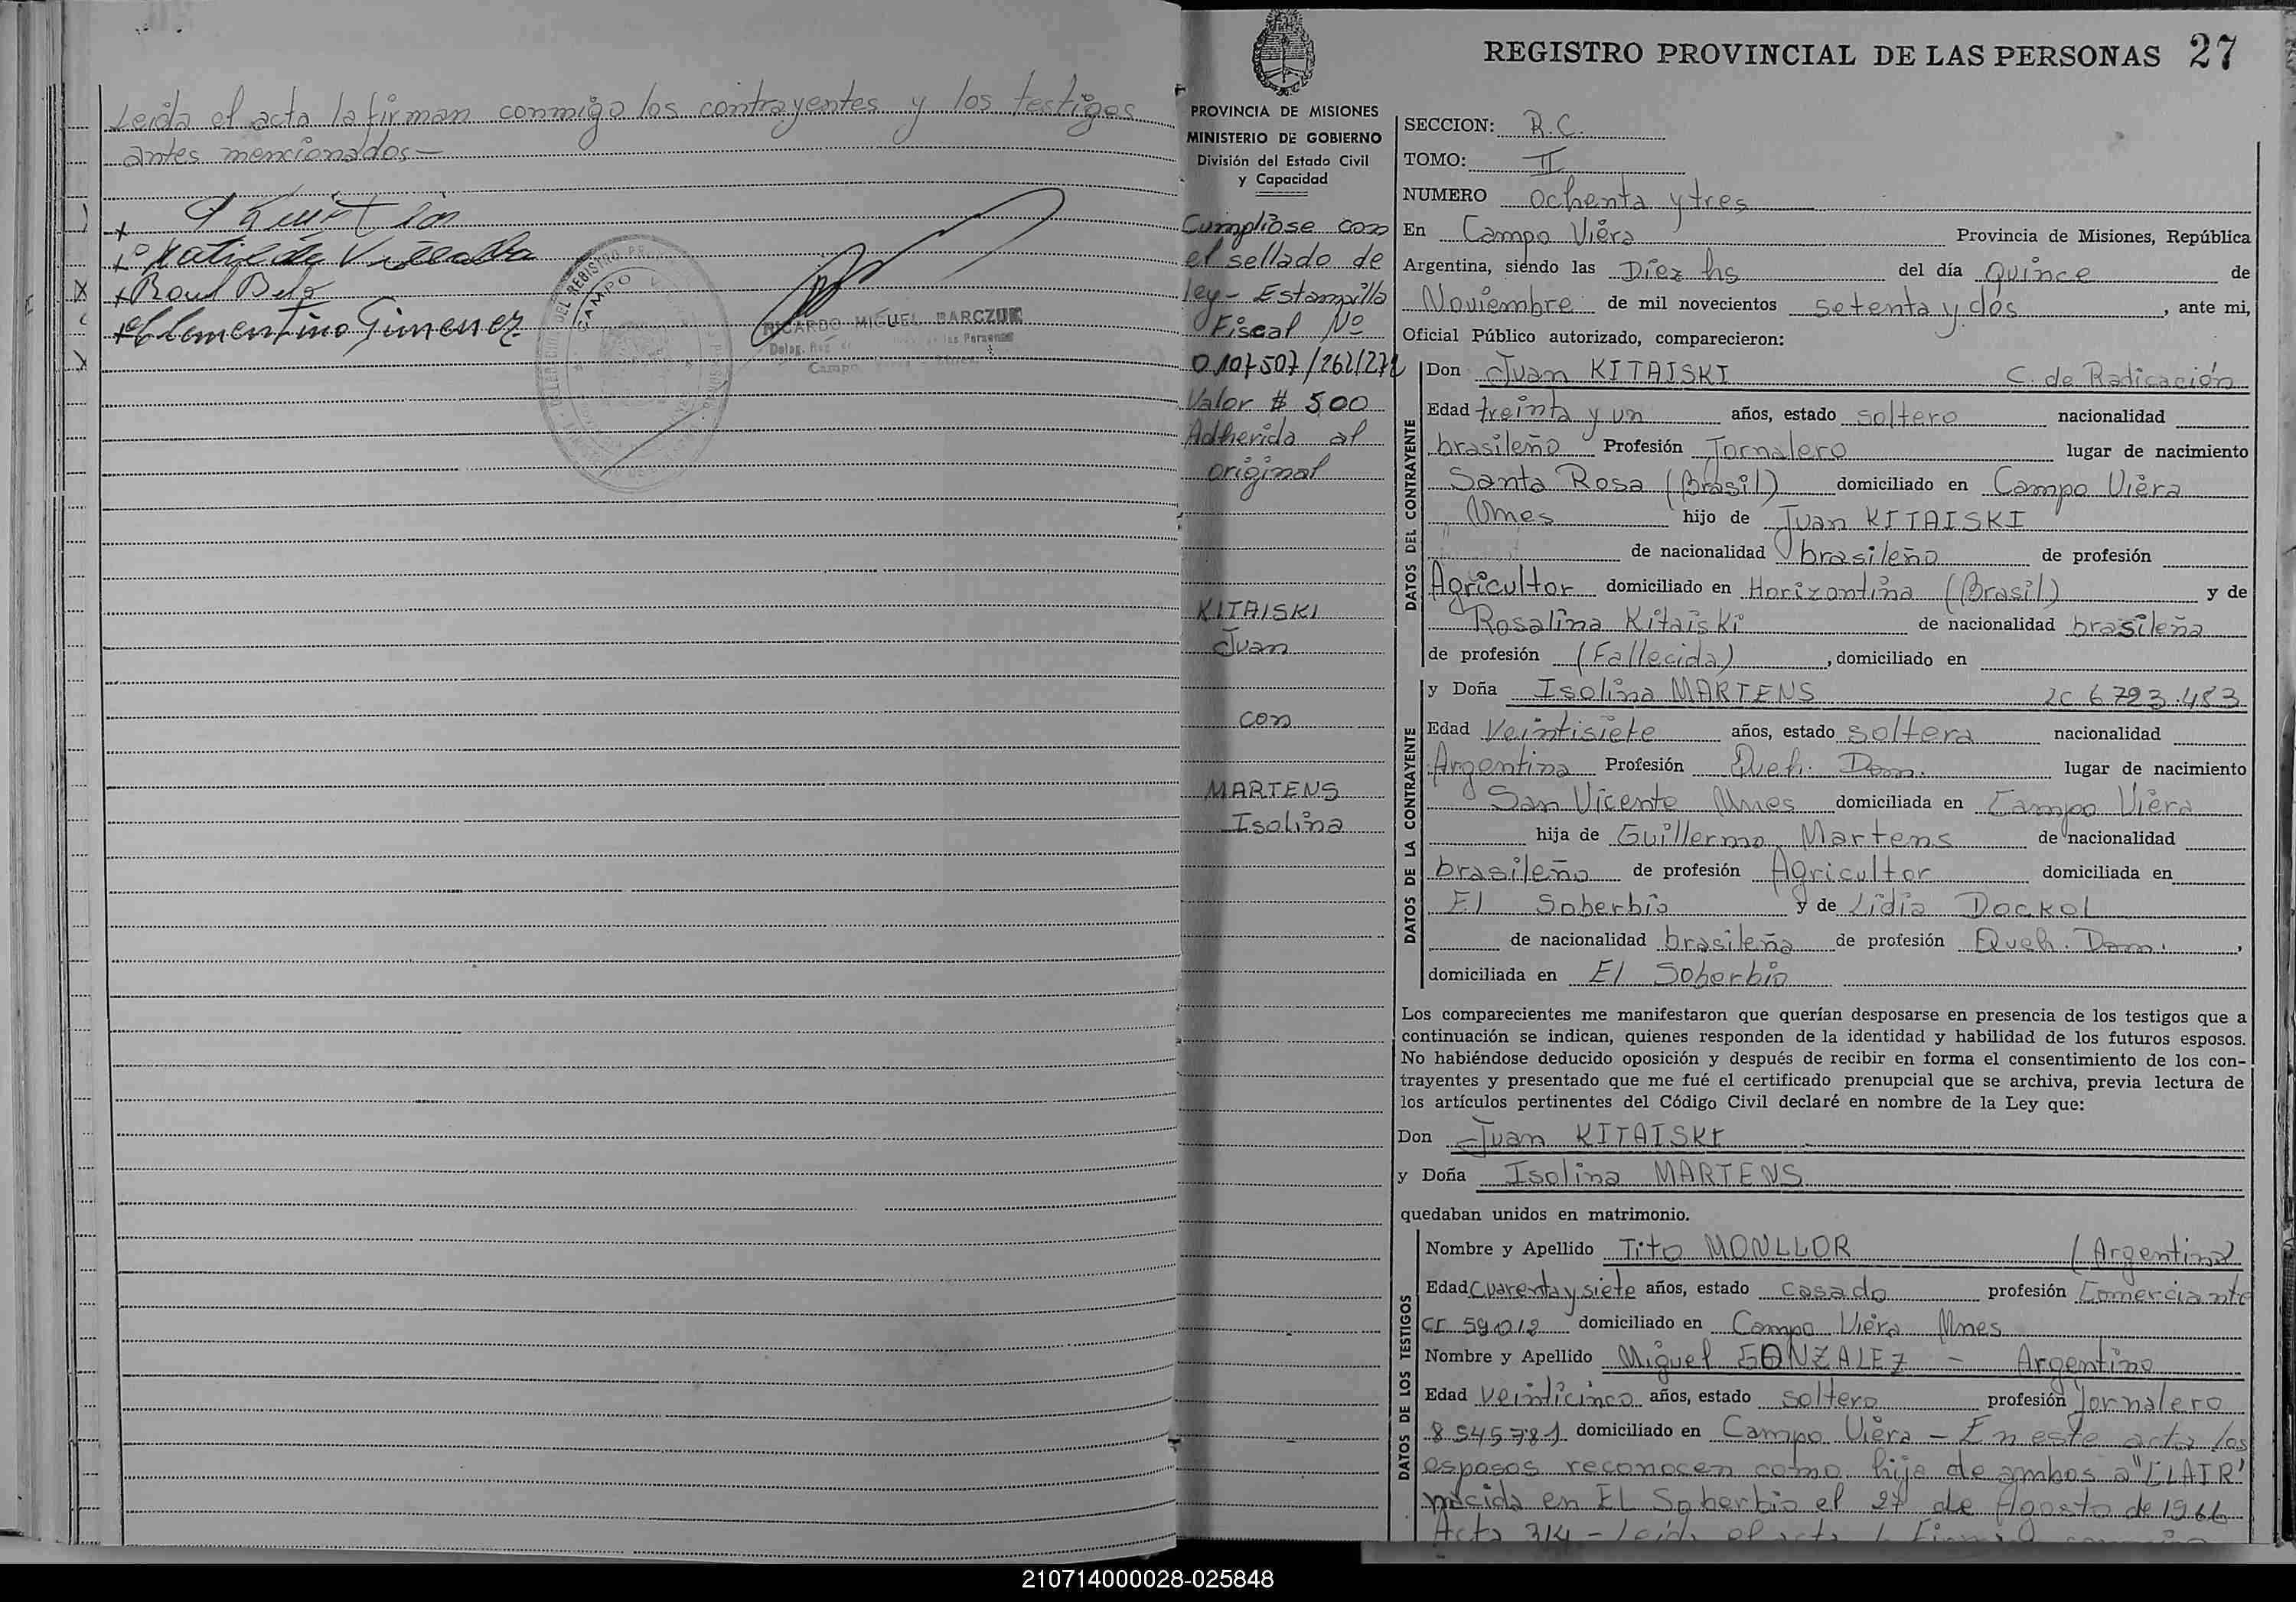 Leída el acta la firman conmigo los contrayentes y los testigos
antes mencionados.—
Raul
Clementino Gimenez
CAMPO
RICARDO MIGUEL BARCZUK
Campo
REGISTRO PROVINCIAL DE LAS PERSONAS 27
PROVINCIA DE MISIONES
MINISTERIO DE GOBIERNO
División del Estado Civil
y Capacidad
Cumpliose con
el sellado de
ley - Estampilla
Fiscal Nº
0.107507/262/272
Valor $ 5,00
Adherida al
original
KITAISKI
Juan
con
MARTENS
Isolina
SECCION: R.C.
TOMO: II
NUMERO ochenta y tres
En Campo Viera Provincia de Misiones, República
Argentina, siendo las Diez hs del día quince de
Noviembre de mil novecientos setenta y dos, ante mi,
Oficial Público autorizado, comparecieron:
DATOS DEL CONTRAYENTE
Don Juan KITAISKI C. de Radicación
Edad treinta y un años, estado soltero nacionalidad
brasileño Profesión Jornalero lugar de nacimiento
Santa Rosa (Brasil) domiciliado en Campo Viera
Mnes hijo de Juan KITAISKI
de nacionalidad brasileño de profesión
Agricultor domiciliado en Horizontina (Brasil) y de
Rosalina Kitaiski de nacionalidad brasileña
de profesión (Fallecida), domiciliado en
DATOS DE LA CONTRAYENTE
y Doña Isolina MARTENS LC 6.793.483
Edad Veintisiete años, estado soltera nacionalidad
Argentina Profesión Queh. Dom. lugar de nacimiento
San Vicente Mnes domiciliada en Campo Viera
hija de Guillermo Martens de nacionalidad
brasileño de profesión Agricultor domiciliada en
El Soberbio y de Lidia Dockol
de nacionalidad brasileña de profesión Queh. Dom.,
domiciliada en El Soberbio
Los comparecientes me manifestaron que querían desposarse en presencia de los testigos que a
continuación se indican, quienes responden de la identidad y habilidad de los futuros esposos.
No habiéndose deducido oposición y después de recibir en forma el consentimiento de los con-
trayentes y presentado que me fué el certificado prenupcial que se archiva, previa lectura de
los artículos pertinentes del Código Civil declaré en nombre de la Ley que:
Don Juan KITAISKI
y Doña Isolina MARTENS
quedaban unidos en matrimonio.
DATOS DE LOS TESTIGOS
Nombre y Apellido Tito MONLLOR (Argentino)
Edad cuarenta y siete años, estado casado profesión Comerciante
CI 59.012 domiciliado en Campo Viera Mnes
Nombre y Apellido Miguel GONZALEZ - Argentino
Edad veinticinco años, estado soltero profesión Jornalero
8545781 domiciliado en Campo Viera - En este acto los
esposos reconocen como hija de ambos a "CLAIR"
nacida en El Soberbio el 27 de Agosto de 1966
Acta 314 - Leída el acta
210714000028-025848